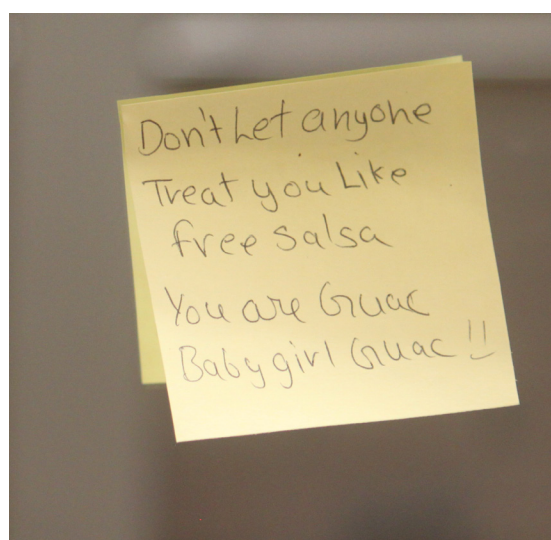 Don't Let anyone
Treat you Like
free salsa
You are Guac
Baby girl Guac !!